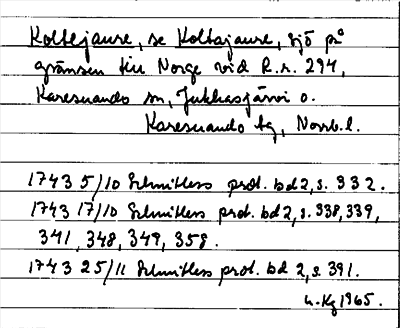 Koltejaure, se Koltajaure, sjö på
gränsen till Norge vid R.r. 294,
Karesuando sn, Jukkasjärvi o.
Karesuando tg, Norrb.l.
1743 5/10 Schnitlers prot. bd 2, s. 332.
1743 17/10 Schnitlers prot. bd 2, s. 338, 339,
341, 348, 349, 358.
1743 25/11 Schnitlers prot. bd 2, s. 391.
1965.